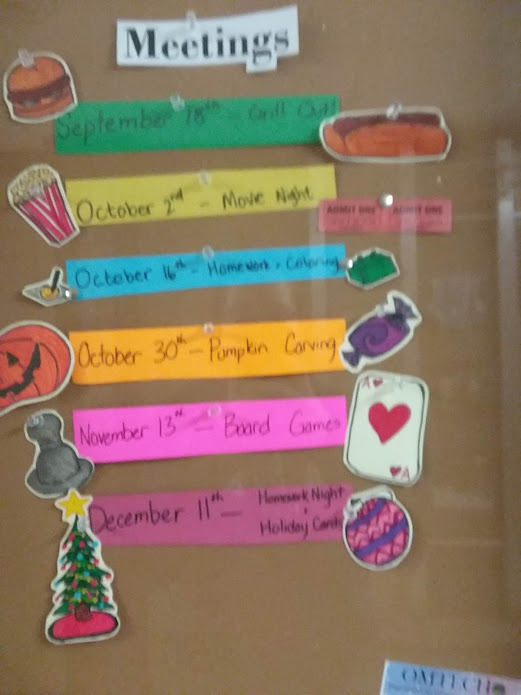 Meetings
September 18th - Grill Out!
October 2nd - Movie Night
ADMIT ONE ADMIT ONE
October 16th - Homework + Coloring
October 30th - Pumpkin Carving
November 13th - Board Games
A
A
December 11th - Homework Night
+
Holiday Cards
OMTECH